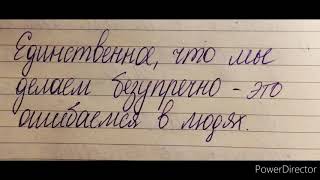 Единственное, что мы
делаем безупречно - это
ошибаемся в людях.
PowerDirector